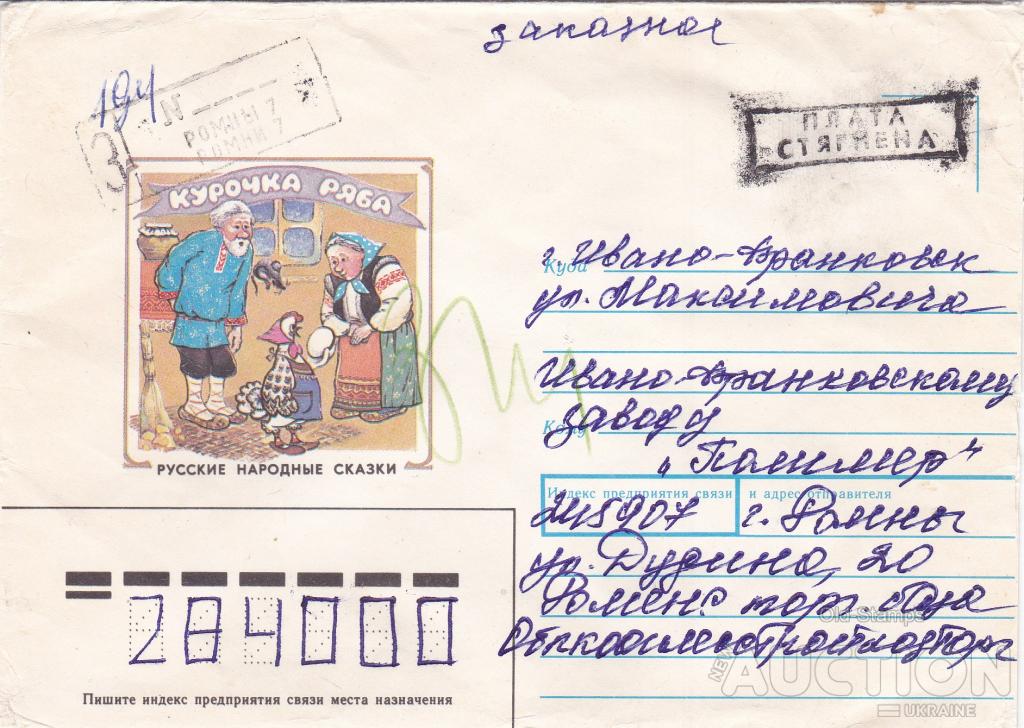 заказное
194
З № РОМНЫ 7
РОМНИ 7
ПЛАТА
СТЯГНЕНА
КУРОЧКА РЯБА
РУССКИЕ НАРОДНЫЕ СКАЗКИ
Куда г. Ивано-Франковск
ул. Максимовича
Ивано-Франковскому
Кому заводу
"Полимер"
Индекс предприятия связи и адрес отправителя
245907 г. Ромны
ул. Дудина, 20
Роменс торг база
284000
Пишите индекс предприятия связи места назначения
Old Stamps
NEW AUCTION
UKRAINE